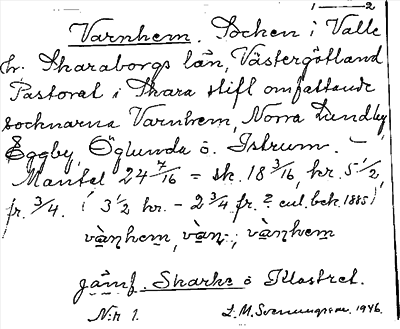 1 — 2
Varnhem. Socken i Valle
hr. Skaraborgs län, Västergötland
Pastorat i Skara stift omfattande
socknarna Varnhem, Norra Lundby
Eggby, Öglunda o. Istrum. —
Mantal 24 7/16 = sk. 18 3/16, kr. 5 1/2,
fr. 3/4. ( 3 1/2 kr. - 2 3/4 fr. enl. bek. 1885)
vàṇhem, vàṇ-, vàṇhem
jämf. Skarke o Klostret.
N:r 1. L. M. Svenungsson. 1946.